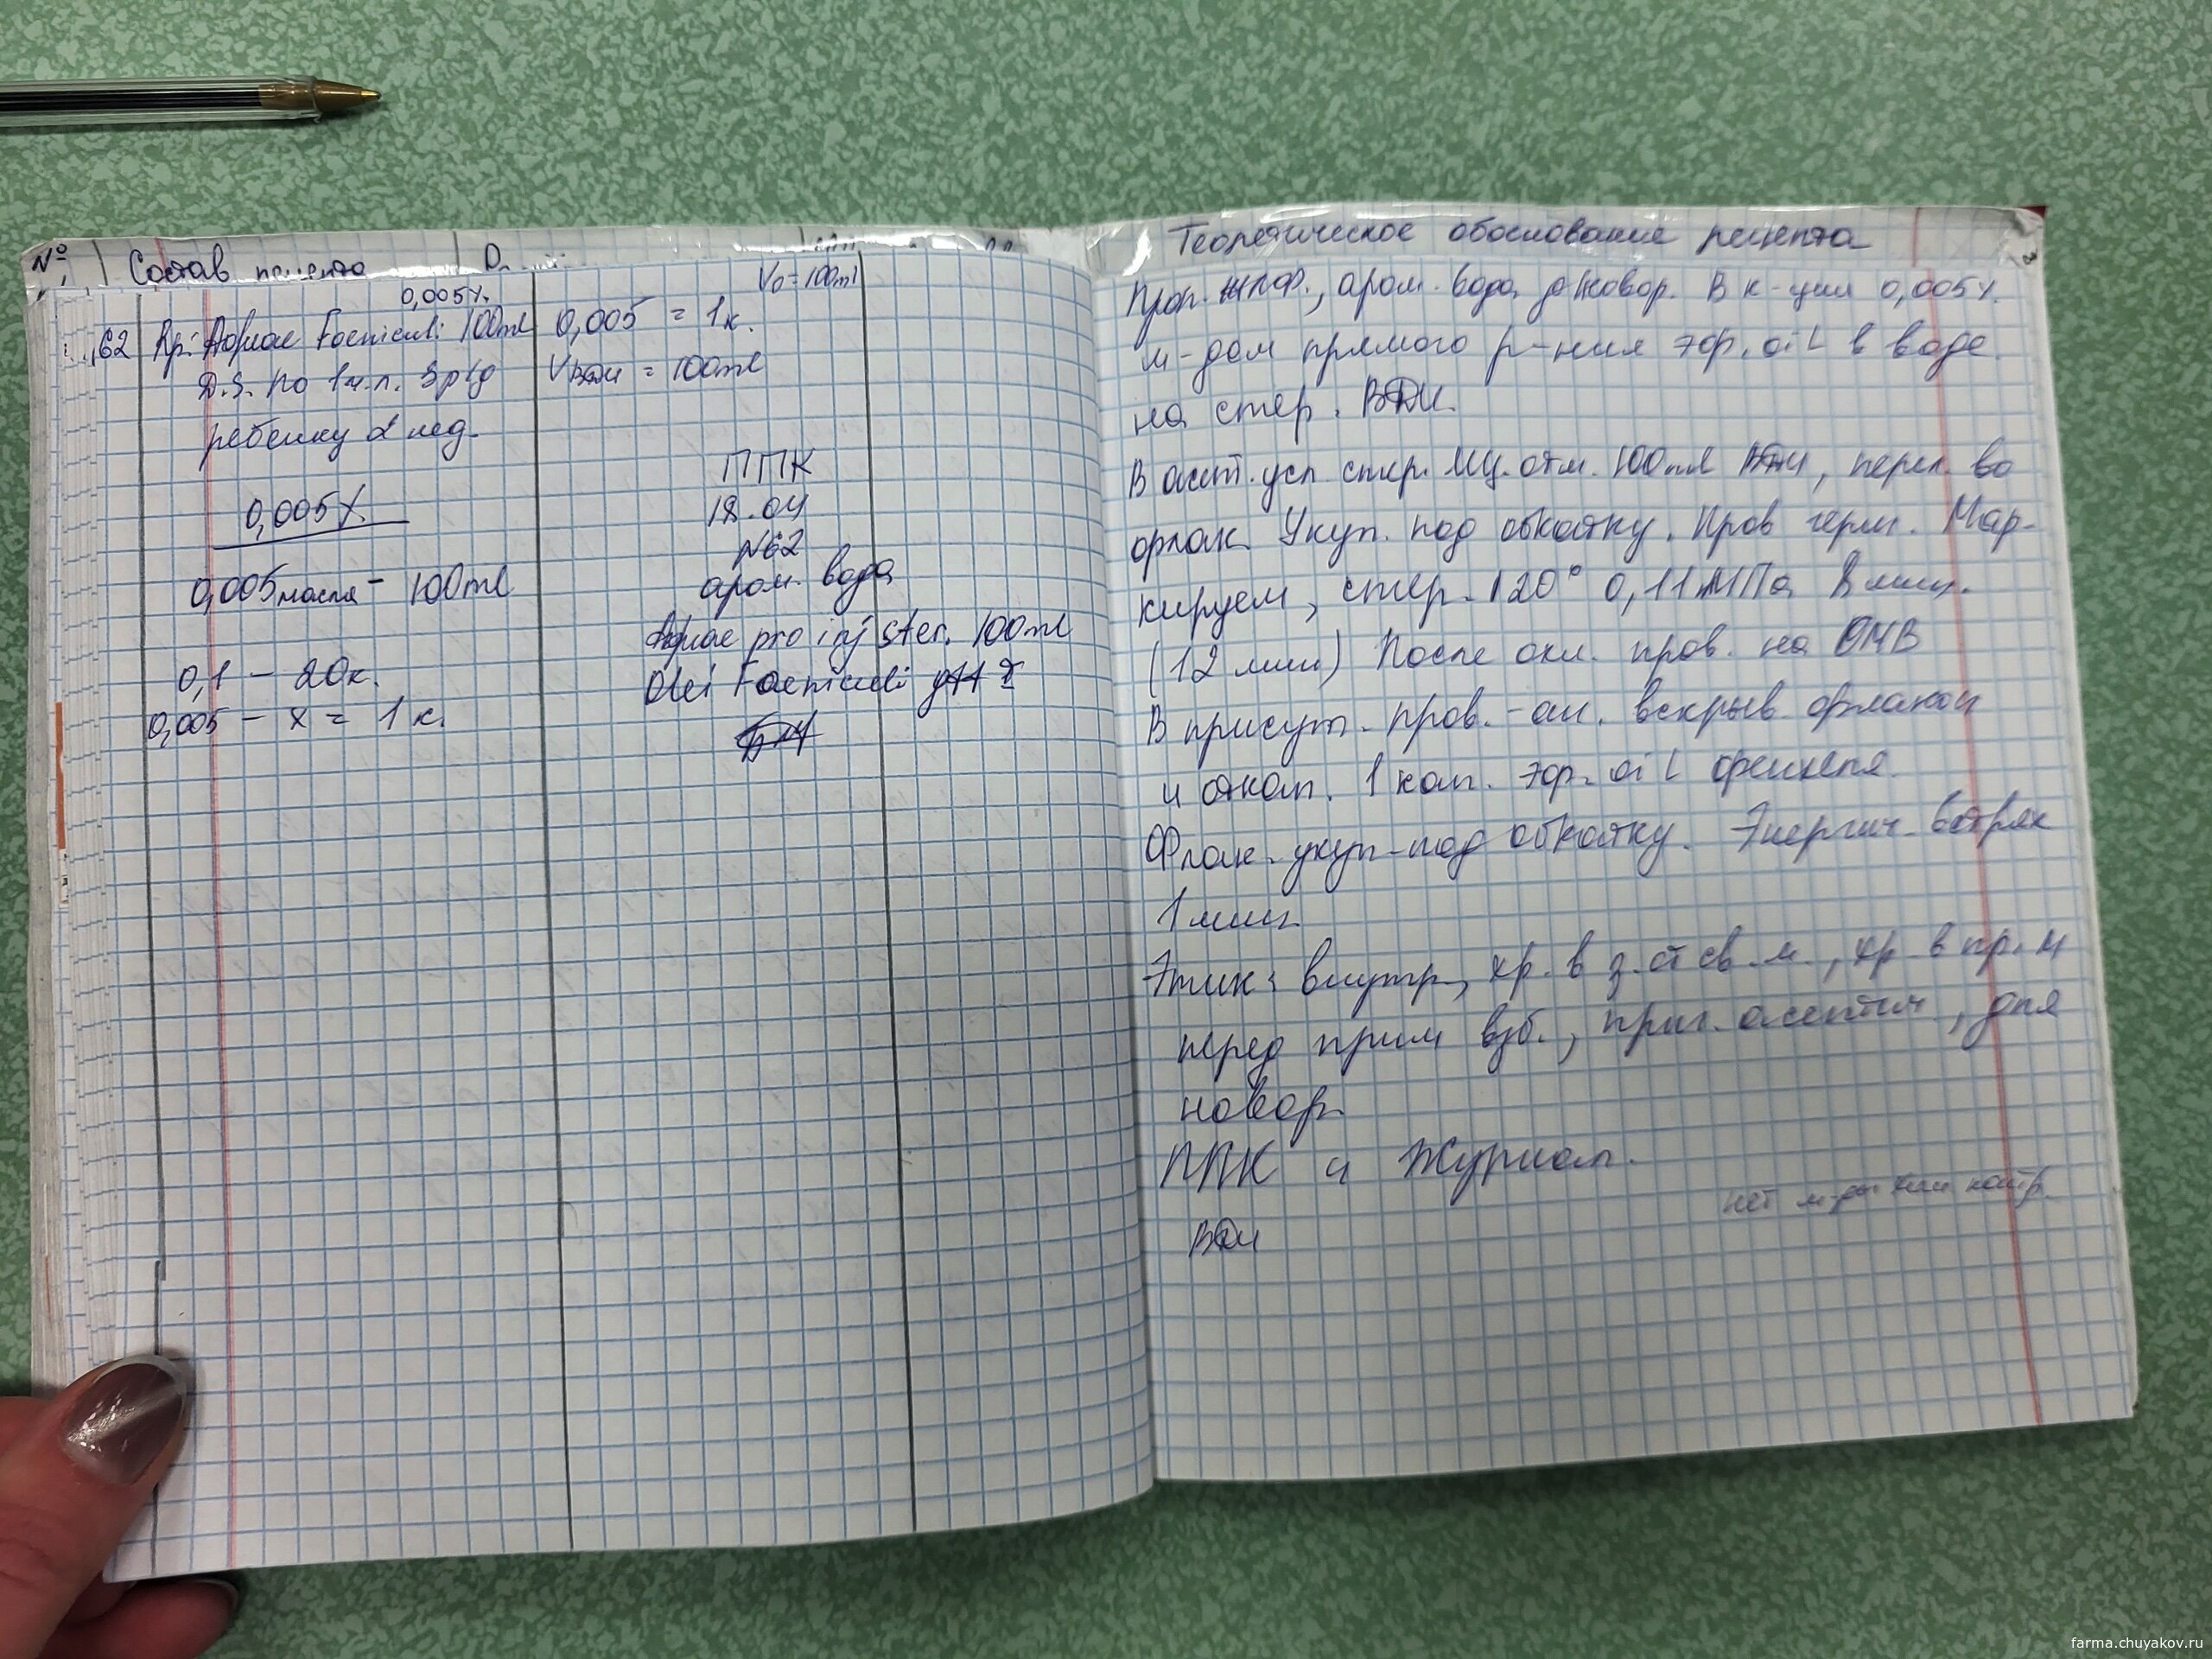 №
Состав рецепта
0,005%
62 Rp: Aquae Foeniculi 100ml
D.S. по 1 ч.л. 3 р/д
ребенку 2 нед.
0,005%
0,005 масла - 100ml
0,1 - 20к.
0,005 - x = 1 к.
V0 = 100ml
0,005 = 1к.
Vвди = 100ml
ППК
18.04
N62
аром. вода
Aquae pro inj ster. 100ml
Olei Foeniculi gtt I
Теоретическое обоснование рецепта
Проп. ЖЛФ., аром. вода д/новор. В к-ции 0,005%.
м-дом прямого р-ния эф. oil в воде
на стер. ВДИ.
В асепт. усл стер. МЦ. отм. 100ml ВДИ, перел. во
флак. Укуп. под обкатку. Пров герм. Мар-
кируем, стер. 120° 0,11 МПа 8 мин.
(12 мин) После охл. пров. на ОМВ
В присут. пров.-ан. вскрыв. флакон
и откап. 1 кап. эф. oil фенхеля.
Флак. укуп. под обкатку. Энергич. встрях
1 мин.
Этик: внутр, хр. в з. от св. м., хр. в пр. м
перед прим взб., приг. асептич., для
новор.
ППК и Журнал.
нет м-ды хим контр.
ВДИ
farma.chuyakov.ru